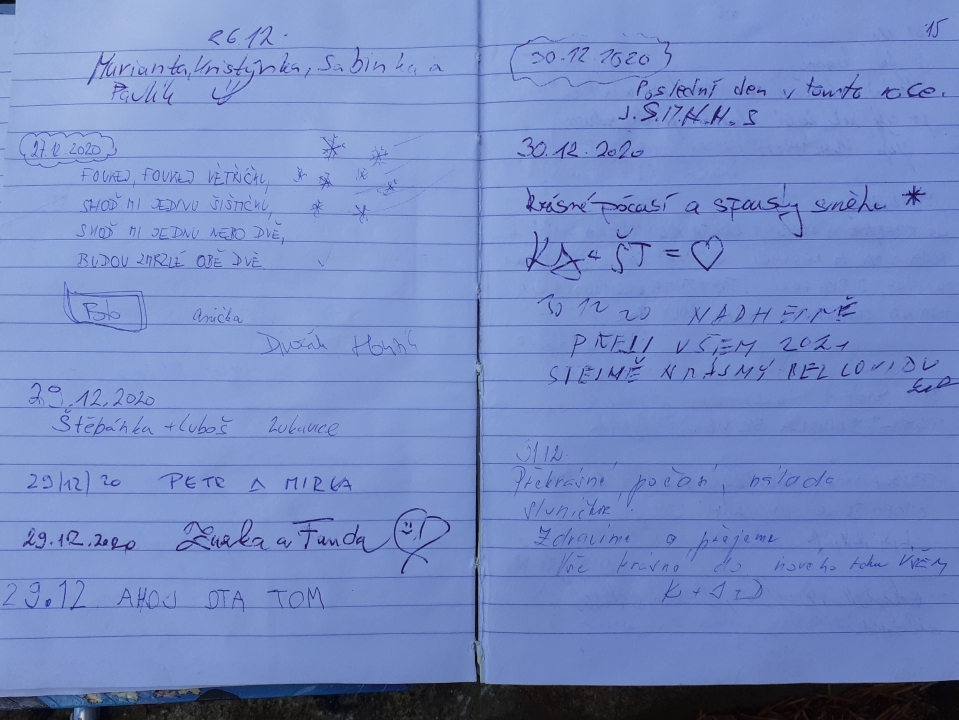 26.12.
Marianka, Kristýnka, Sabinka a
Pavlík
27.12.2020
FOUKEJ, FOUKEJ VĚTŘÍČKU,
SHOĎ MI JEDNU ŠIŠTIČKU,
SHOĎ MI JEDNU NEBO DVĚ,
BUDOU ZMRZLÉ OBĚ DVĚ
anička
Dvořák
29.12.2020
Štěpánka + Luboš Lukavice
29/12/20 PETR A MIRKA
29.12.2020 Zuzka a Fanda
29.12. AHOJ OTA TOM
15
30.12.2020
Poslední den v tomto roce.
J.S.17.H.H.S
30.12.2020
krásné počasí a spousty sněhu *
+ ŠT = ♡
30 12 20 NÁDHERNĚ
PŘEJI VŠEM 2021
STEJNĚ KRÁSNÝ BEZ COVIDU
31.12.
Překrásné počasí, nálada
sluníčko.
Zdravíme a přejeme
Vše krásné do nového roku VŠEM